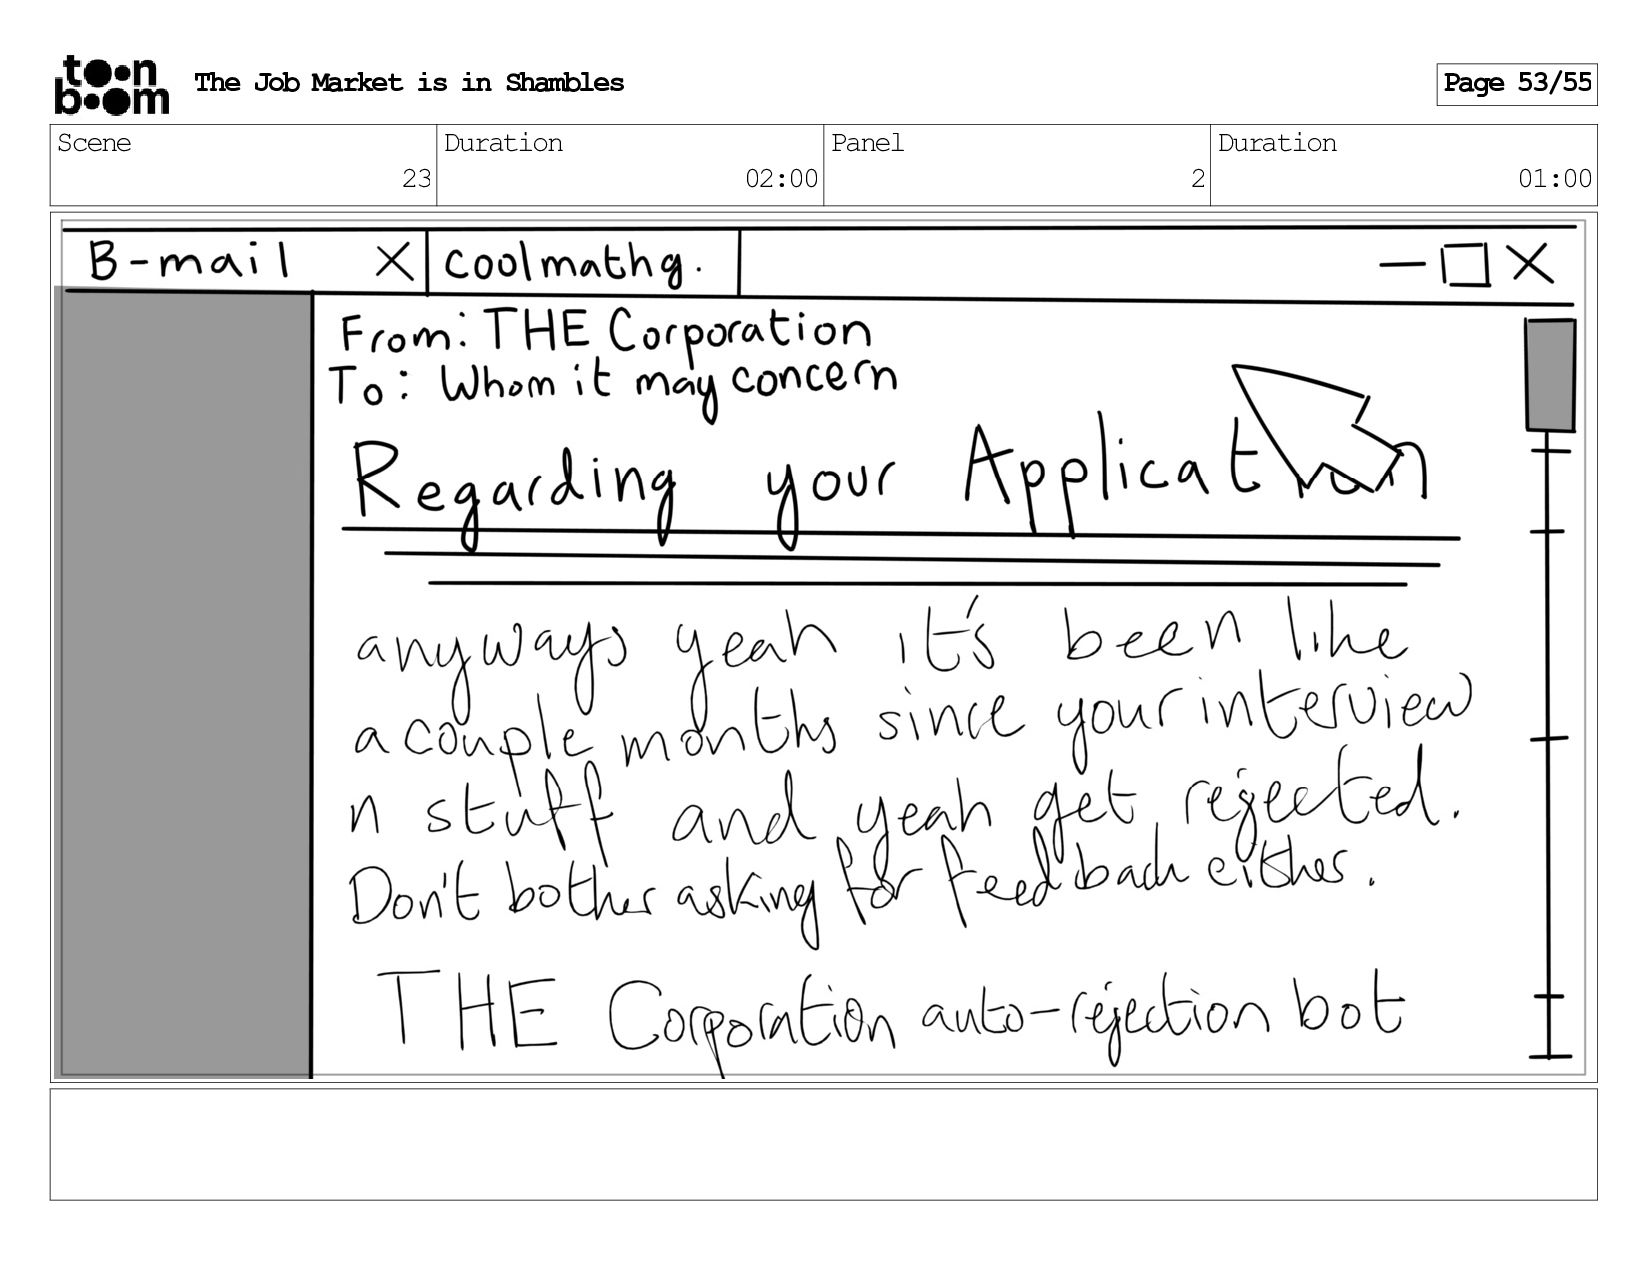 toon boom
The Job Market is in Shambles
Page 53/55
Scene
23
Duration
02:00
Panel
2
Duration
01:00
B-mail X
coolmathg.
From: THE Corporation
To: Whom it may concern
Regarding your Application
anyways yeah it's been like
a couple months since your interview
n stuff and yeah get rejected.
Don't bother asking for feedback either.
THE Corporation auto-rejection bot